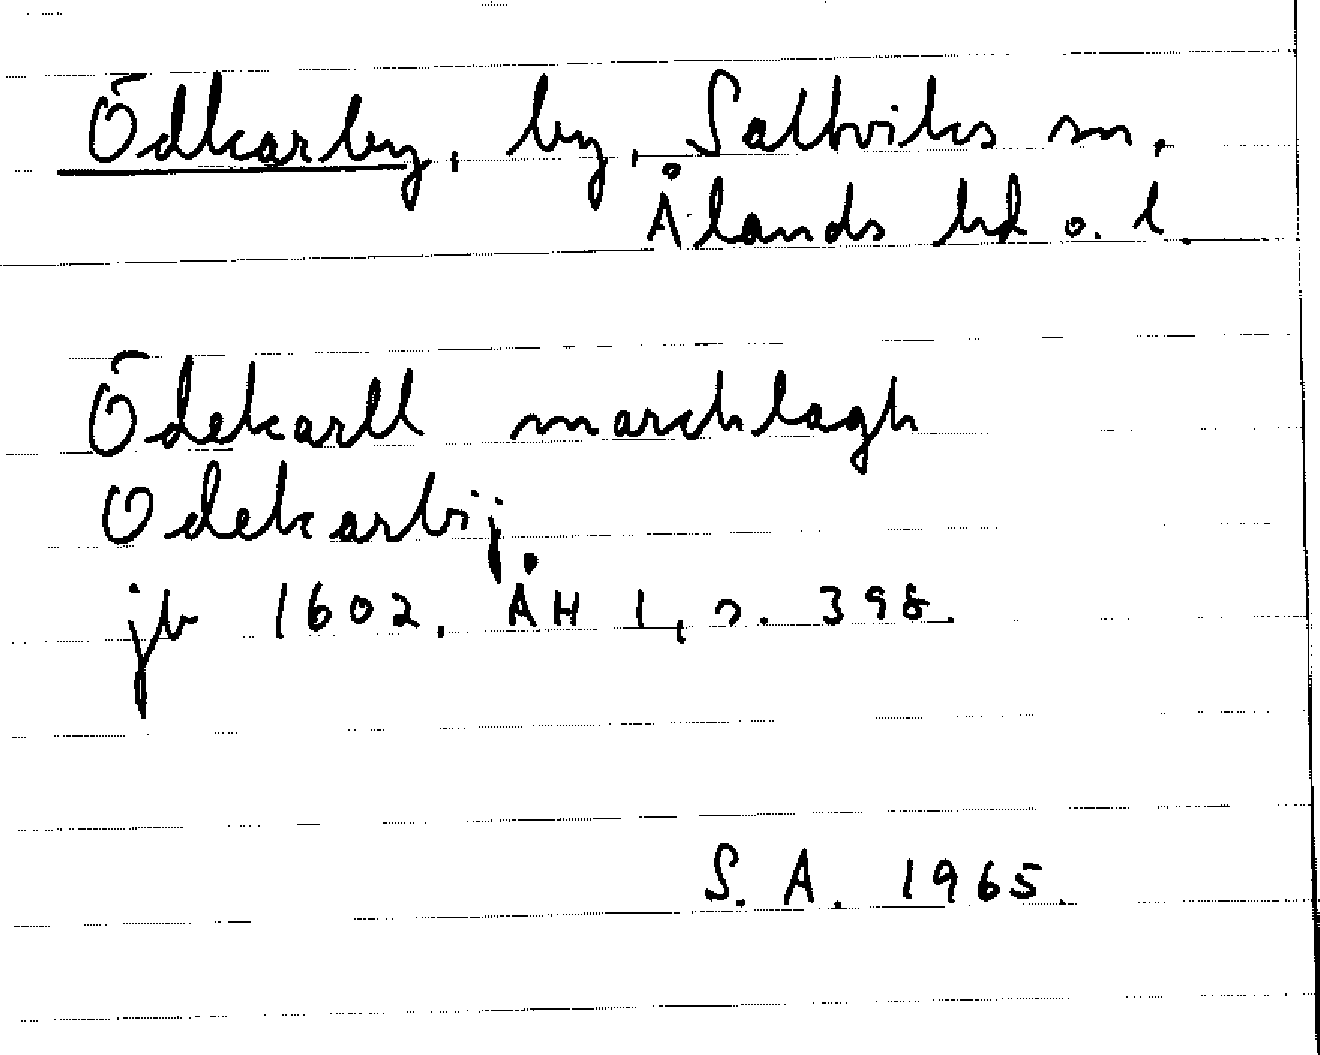 Ödkarby, by, Saltviks sn,
Ålands hd o. l.
Ödekarll marchlagh
Odekarbij
jb 1602. ÅH 1, s. 398.
S. A. 1965.